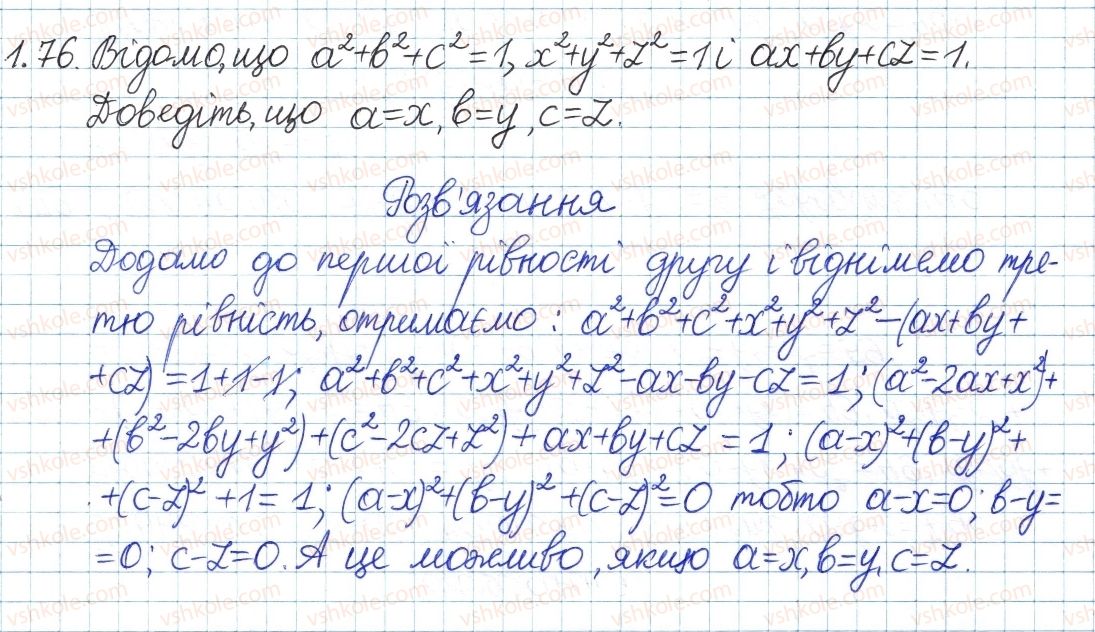 1.76. Відомо, що a²+b²+c²=1, x²+y²+z²=1 і ax+by+cz=1.
Доведіть, що a=x, b=y, c=z.
Розв'язання
Додамо до першої рівності другу і віднімемо тре-
тю рівність, отримаємо: a²+b²+c²+x²+y²+z²-(ax+by+
+cz)=1+1-1; a²+b²+c²+x²+y²+z²-ax-by-cz=1; (a²-2ax+x²)+
+(b²-2by+y²)+(c²-2cz+z²)+ax+by+cz=1; (a-x)²+(b-y)²+
+(c-z)²+1=1; (a-x)²+(b-y)²+(c-z)²=0 тобто a-x=0; b-y=
=0; c-z=0. А це можливо, якщо a=x, b=y, c=z.